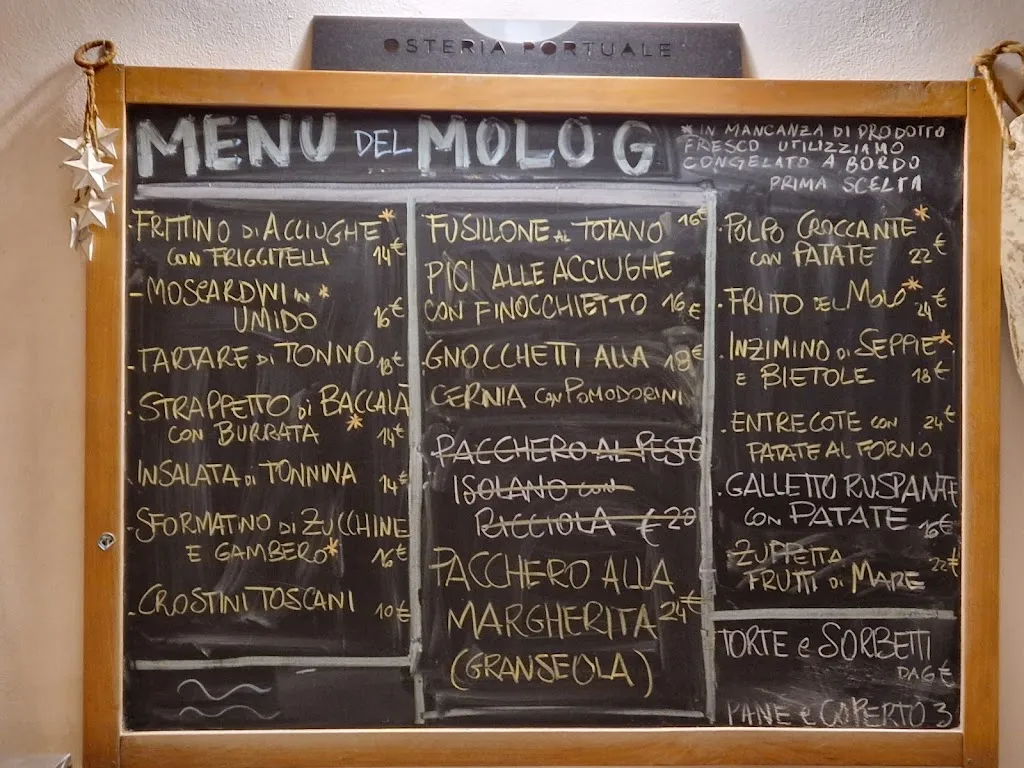 OSTERIA PORTUALE
MENU DEL MOLO G
*IN MANCANZA DI PRODOTTO
FRESCO UTILIZZIAMO
CONGELATO A BORDO
PRIMA SCELTA
·FRITTINO DI ACCIUGHE*
CON FRIGGITELLI 14€
-MOSCARDINI IN *
UMIDO 16€
·TARTARE DI TONNO 18€
·STRAPPETTO DI BACCALÀ
CON BURRATA * 14€
·INSALATA DI TONNINA 14€
·SFORMATINO DI ZUCCHINE
E GAMBERO* 16€
·CROSTINI TOSCANI 10€
FUSILLONE AL TOTANO 16€
PICI ALLE ACCIUGHE
CON FINOCCHIETTO 16€
·GNOCCHETTI ALLA 18€
CERNIA CON POMODORINI
·PACCHERO AL PESTO
ISOLANO CON
RICCIOLA €20
PACCHERO ALLA
MARGHERITA 24€
(GRANSEOLA)
·POLPO CROCCANTE*
CON PATATE 22€
·FRITTO DEL MOLO* 24€
·INZIMINO DI SEPPIE*
E BIETOLE 18€
·ENTRECOTE CON 24€
PATATE AL FORNO
·GALLETTO RUSPANTE
CON PATATE 16€
·ZUPPETTA 22€
FRUTTI DI MARE
TORTE e SORBETTI
DA 6€
PANE e COPERTO 3